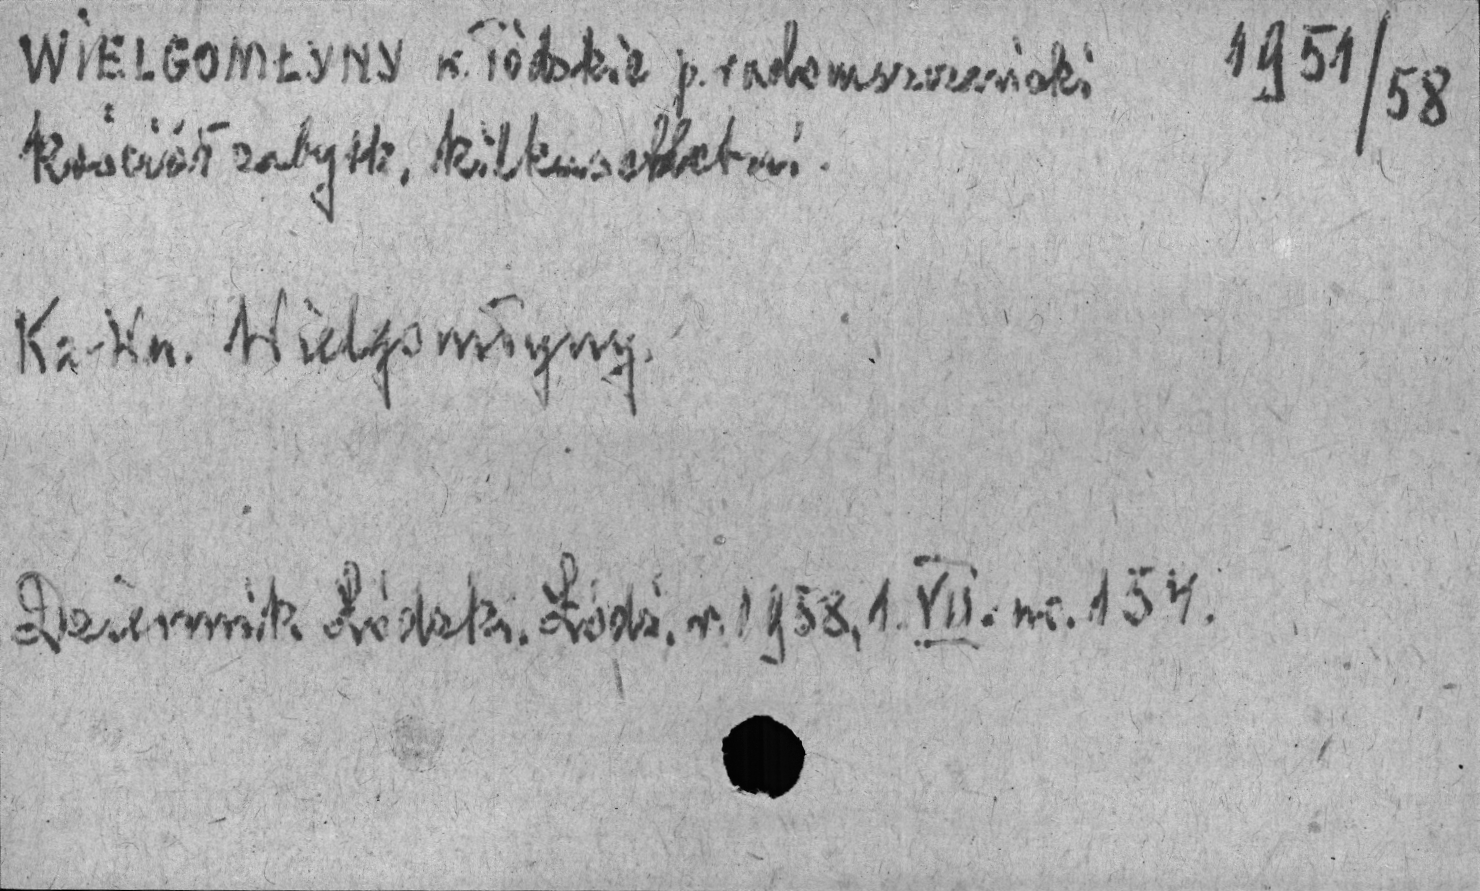 WIELGOMŁYNY w. łódzkie p. radomszczański 1951/58
kościół zabytk. kilkusetletni.
Ka-Wu. Wielgomłyny.
Dziennik Łódzki. Łódź. r. 1958, 1. VII. nr. 154.